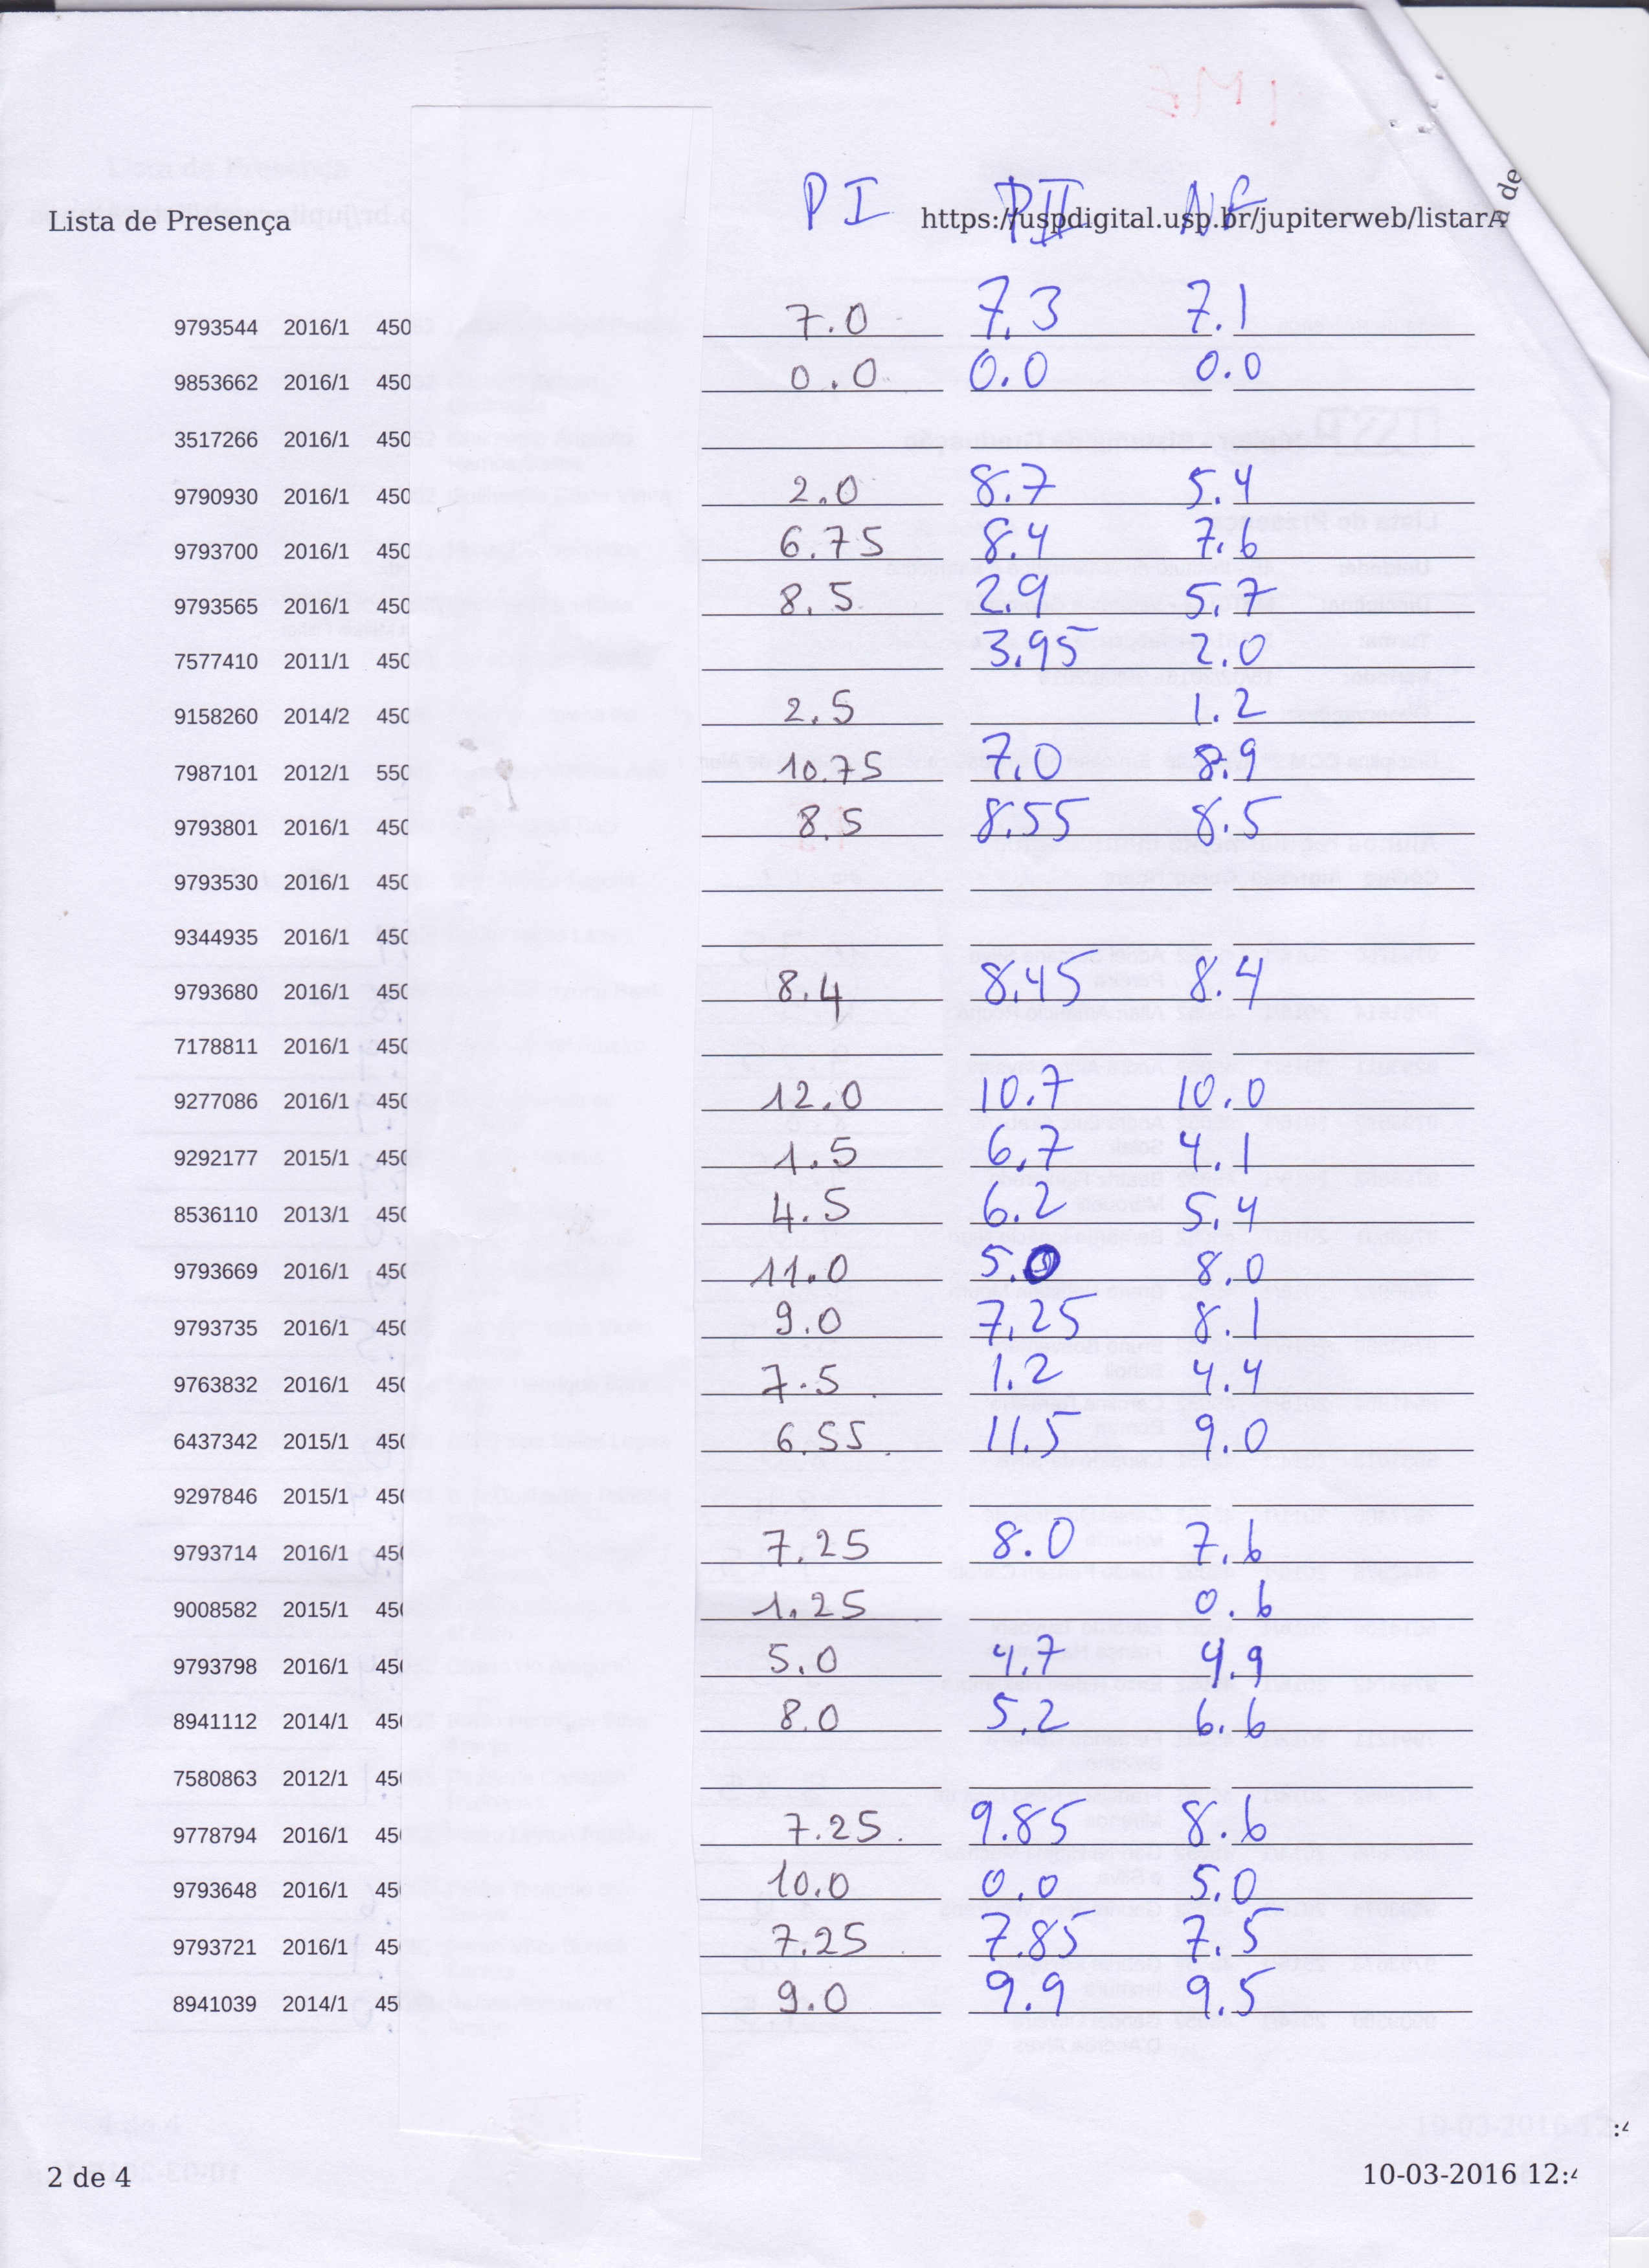 IME
PI PII NF
Lista de Presença https://uspdigital.usp.br/jupiterweb/listarA
a de
9793544 2016/1 450 7.0 7.3 7.1
9853662 2016/1 450 0.0 0.0 0.0
3517266 2016/1 450
9790930 2016/1 450 2.0 8.7 5.4
9793700 2016/1 450 6.75 8.4 7.6
9793565 2016/1 450 8.5 2.9 5.7
7577410 2011/1 450 3.95 2.0
9158260 2014/2 450 2.5 1.2
7987101 2012/1 550 10.75 7.0 8.9
9793801 2016/1 450 8.5 8.55 8.5
9793530 2016/1 450
9344935 2016/1 450
9793680 2016/1 450 8.4 8.45 8.4
7178811 2016/1 450
9277086 2016/1 450 12.0 10.7 10.0
9292177 2015/1 450 1.5 6.7 4.1
8536110 2013/1 450 4.5 6.2 5.4
9793669 2016/1 450 11.0 5.0 8.0
9793735 2016/1 450 9.0 7.25 8.1
9763832 2016/1 450 7.5 1.2 4.4
6437342 2015/1 450 6.55 11.5 9.0
9297846 2015/1 450
9793714 2016/1 450 7.25 8.0 7.6
9008582 2015/1 450 1.25 0.6
9793798 2016/1 450 5.0 4.7 4.9
8941112 2014/1 450 8.0 5.2 6.6
7580863 2012/1 450
9778794 2016/1 450 7.25 9.85 8.6
9793648 2016/1 45 10.0 0.0 5.0
9793721 2016/1 45 7.25 7.85 7.5
8941039 2014/1 45 9.0 9.9 9.5
2 de 4 10-03-2016 12:4